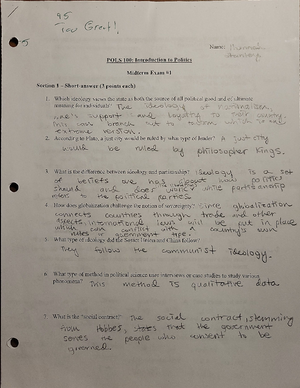 95
100 Great!
Name: Hannah
POLS 100: Introduction to Politics
Midterm Exam #1
Section 1 – Short answer (3 points each)
1. Which ideology views the state as both the source of all political good and of ultimate
for individuals? The ideology of nationalism,
one's support and loyalty to their country
own branch but is
extreme version.
2. According to Plato, a just city would be ruled by what type of leader? A just city
would be ruled by philosopher kings.
3. What is the difference between ideology and partisanship? Ideology is a set
of beliefs are has about how parties
should and does work while partisanship
is the political parties.
4. How does globalization challenge the notion of sovereignty? Since globalization
connects countries through trade and other
aspects, international laws will be put in place
which can conflict with a country's own
rules or government type.
5. What type of ideology did the Soviet Union and China follow?
They follow the communist ideology.
6. What type of method in political science uses interviews or case studies to study
phenomena? This method is qualitative data.
7. What is the "social contract"? The social contract, stemming
from Hobbes, states that the government
serves the people who consent to be
governed.